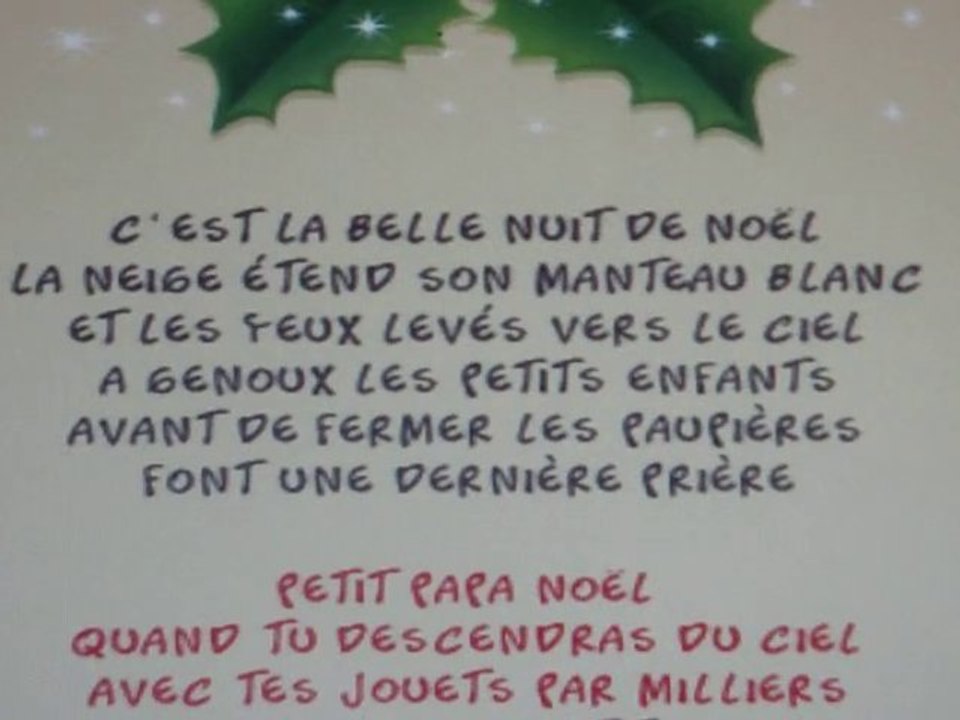 C'EST LA BELLE NUIT DE NOËL
LA NEIGE ÉTEND SON MANTEAU BLANC
ET LES YEUX LEVÉS VERS LE CIEL
A GENOUX LES PETITS ENFANTS
AVANT DE FERMER LES PAUPIÈRES
FONT UNE DERNIÈRE PRIÈRE
PETIT PAPA NOËL
QUAND TU DESCENDRAS DU CIEL
AVEC TES JOUETS PAR MILLIERS